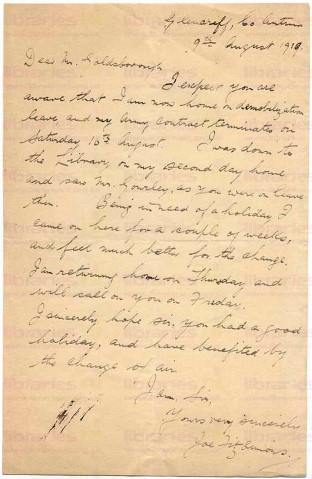 Glenariff, Co Antrim
9th August 1919.
Dear Mr. Goldsborough
I expect you are
aware that I am now home on demobilization
leave and my Army contract terminates on
Saturday 16th August. I was down to
the Library, on my second day home
and saw Mr. Gourley, as you were on leave
then. Being in need of a holiday I
came on here for a couple of weeks,
and feel much better for the change.
I am returning home on Thursday and
will call on you on Friday.
I sincerely hope sir, you had a good
holiday, and have benefited by
the change of air.
I am, Sir,
Yours very sincerely
Joe Fitzsimons.